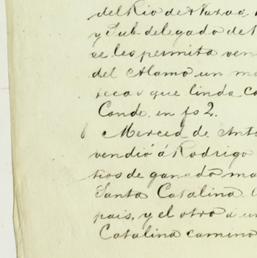 del Rio de Nazas,
y Sub-delegado de
se les permita ven
del Alamo un
que linda co
Conde, en fs 2.
Merced de Anto
vendió á Rodrigo
tios de ganado ma
Santa Catalina
pais, y el otro a un
Catalina camino